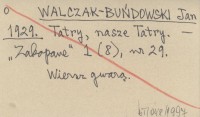 o WALCZAK-BUŃDOWSKI Jan
1929. Tatry, nasze Tatry. —
„Zakopane" 1 (8), nr 29.
Wiersz gwarą.